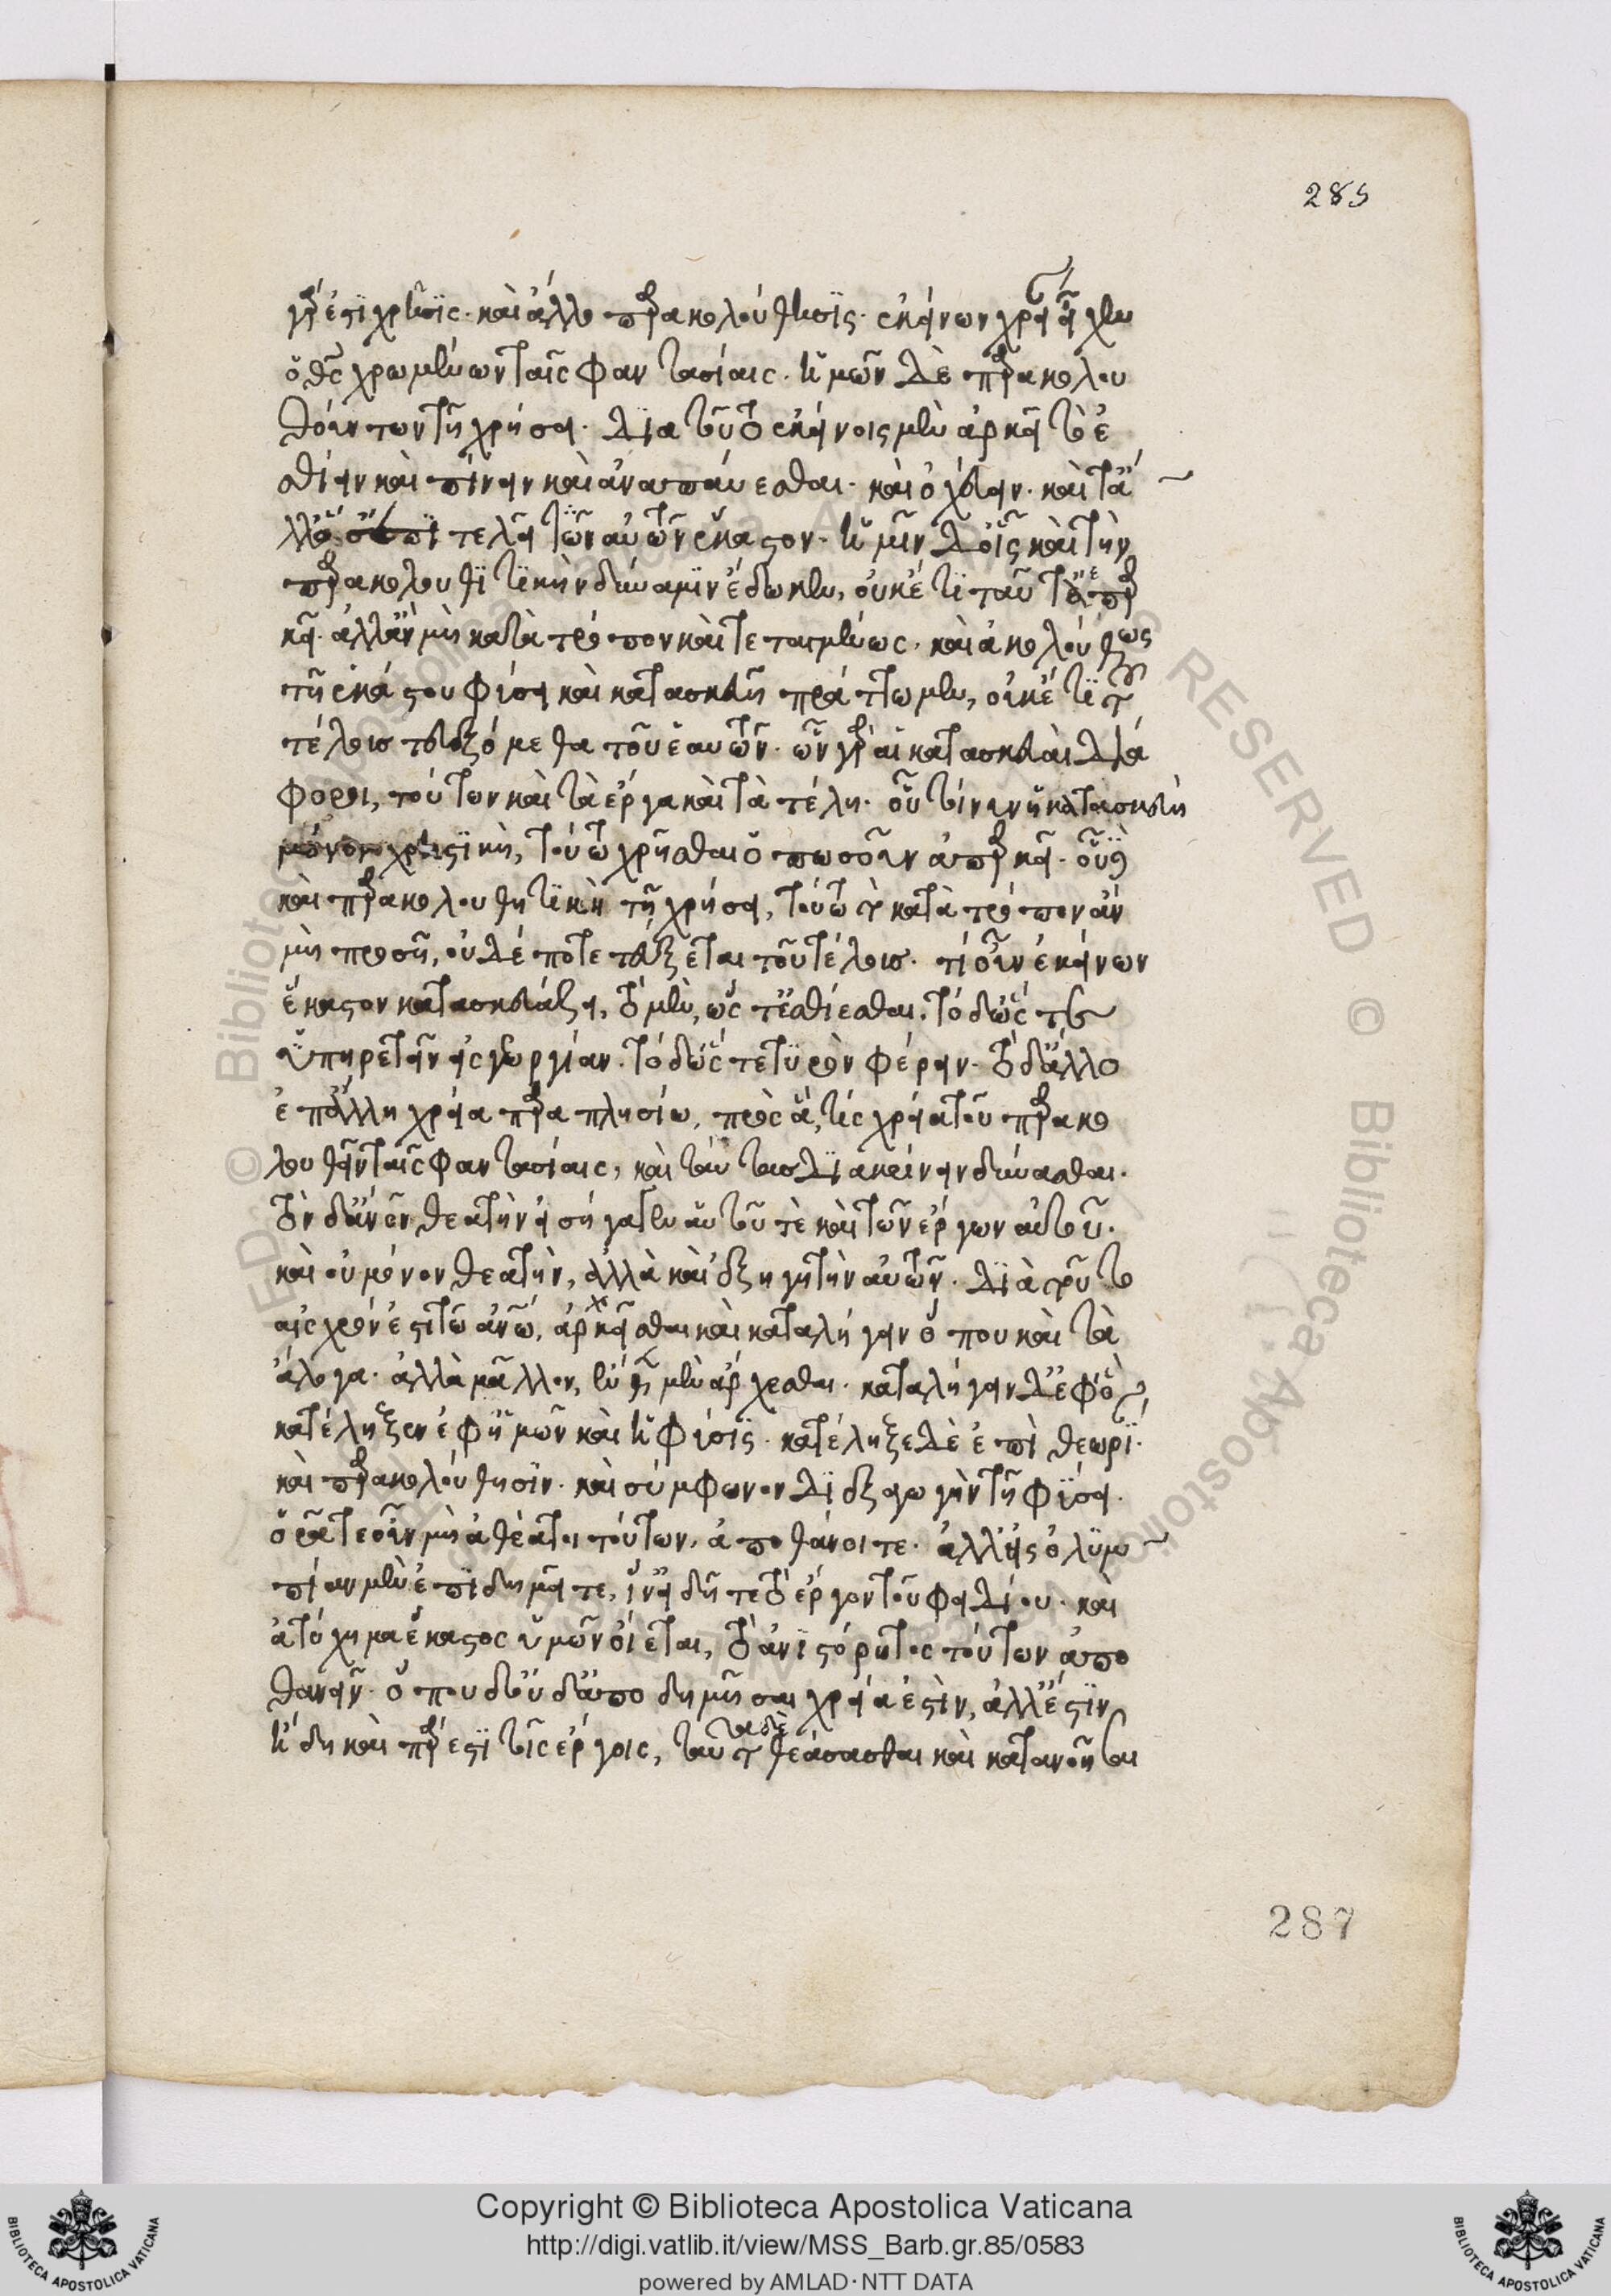 285
γάρ ἐστι χρῆσις· καὶ ἄλλο παρακολούθησις· ἐκείνων χρείαν εἶχεν
ὁ θεὸς χρωμένων ταῖς φαντασίαις· ἡμῶν δὲ παρακολου
θούντων τῇ χρήσει· διατοῦτο ἐκείνοις μὲν ἀρκεῖ τὸ ἐ
σθίειν καὶ πίνειν καὶ ἀναπαύεσθαι· καὶ ὀχεύειν· καὶ τἄ
λλα ὅσα ἐπιτελεῖ τῶν αὐτῶν ἕκαστον· ἡμῖν δ' οἷς καὶ τὴν
παρακολουθητικὴν δύναμιν ἔδωκεν, οὐκέτι ταῦτα ἀπαρ
κεῖ· ἀλλ' ἂν μὴ κατὰ τρόπον καὶ τεταγμένως· καὶ ἀκολούθως
τῇ ἑκάστου φύσει καὶ κατασκευῇ πράττωμεν, οὐκέτι τοῦ
τέλους τευξόμεθα τοῦ ἑαυτῶν· ὧν γὰρ αἱ κατασκευαὶ διά
φοροι, τούτων καὶ τὰ ἔργα καὶ τὰ τέλη· οὗ τοίνυν ἡ κατασκευὴ
μόνον χρηστικὴ, τούτῳ χρῆσθαι ὁπωσοῦν ἀπαρκεῖ· οὗ δὲ
καὶ παρακολουθητικὴ τῇ χρήσει, τούτῳ τὸ κατὰ τρόπον ἂν
μὴ προσῇ, οὐδέποτε τεύξεται τοῦ τέλους· τί οὖν ἐκείνων
ἕκαστον κατασκευάζει, τὸ μὲν, ὥστ' ἐσθίεσθαι· τὸ δ' ὥστε
ὑπηρετεῖν εἰς γεωργίαν· τὸ δ' ὥστε τυρὸν φέρειν· τὸ δ' ἄλλο
ἐπ' ἄλλη χρεία παραπλησίῳ, πρὸς ἃ, τίς χρεία τοῦ παρακο
λουθεῖν ταῖς φαντασίαις, καὶ ταύτας διακρίνειν δύνασθαι·
τὸν δ' ἄνθρωπον θεατὴν εἰσήγαγεν αὑτοῦ τὲ καὶ τῶν ἔργων αὐτοῦ·
καὶ οὐ μόνον θεατὴν, ἀλλὰ καὶ ἐξηγητὴν αὐτῶν· διὰ τοῦτο
αἰσχρόν ἐστι τῷ ἀνθρώπῳ, ἄρχεσθαι καὶ καταλήγειν ὅπου καὶ τὰ
ἄλογα· ἀλλὰ μᾶλλον, ἔνθεν μὲν ἄρχεσθαι· καταλήγειν δὲ ἐφ' ὃ
κατέληξεν ἐφ' ἡμῶν καὶ ἡ φύσις· κατέληξε δὲ ἐπὶ θεωρί·
καὶ παρακολούθησιν· καὶ σύμφωνον διεξαγωγὴν τῇ φύσει·
ὁρᾶτε οὖν μὴ ἀθέατοι τούτων, ἀποθάνοιτε· ἀλλ' εἰς ὀλυμ
πίαν μὲν ἐπιδημεῖτε, ἵν' εἰδῆτε τὸ ἔργον τοῦ φειδίου· καὶ
ἀτύχημα ἕκαστος ὑμῶν οἴεται, τὸ ἀνιστόρητος τούτων ἀπο
θανεῖν· ὅπου δ' οὐδ' ἀποδημῆσαι χρεία ἐστὶν, ἀλλ' ἔστιν
ἤδη καὶ πάρεστι τοῖς ἔργοις, ταῦτα δὲ θεάσασθαι καὶ κατανοῆσαι
287
Copyright © Biblioteca Apostolica Vaticana
http://digi.vatlib.it/view/MSS_Barb.gr.85/0583
powered by AMLAD·NTT DATA